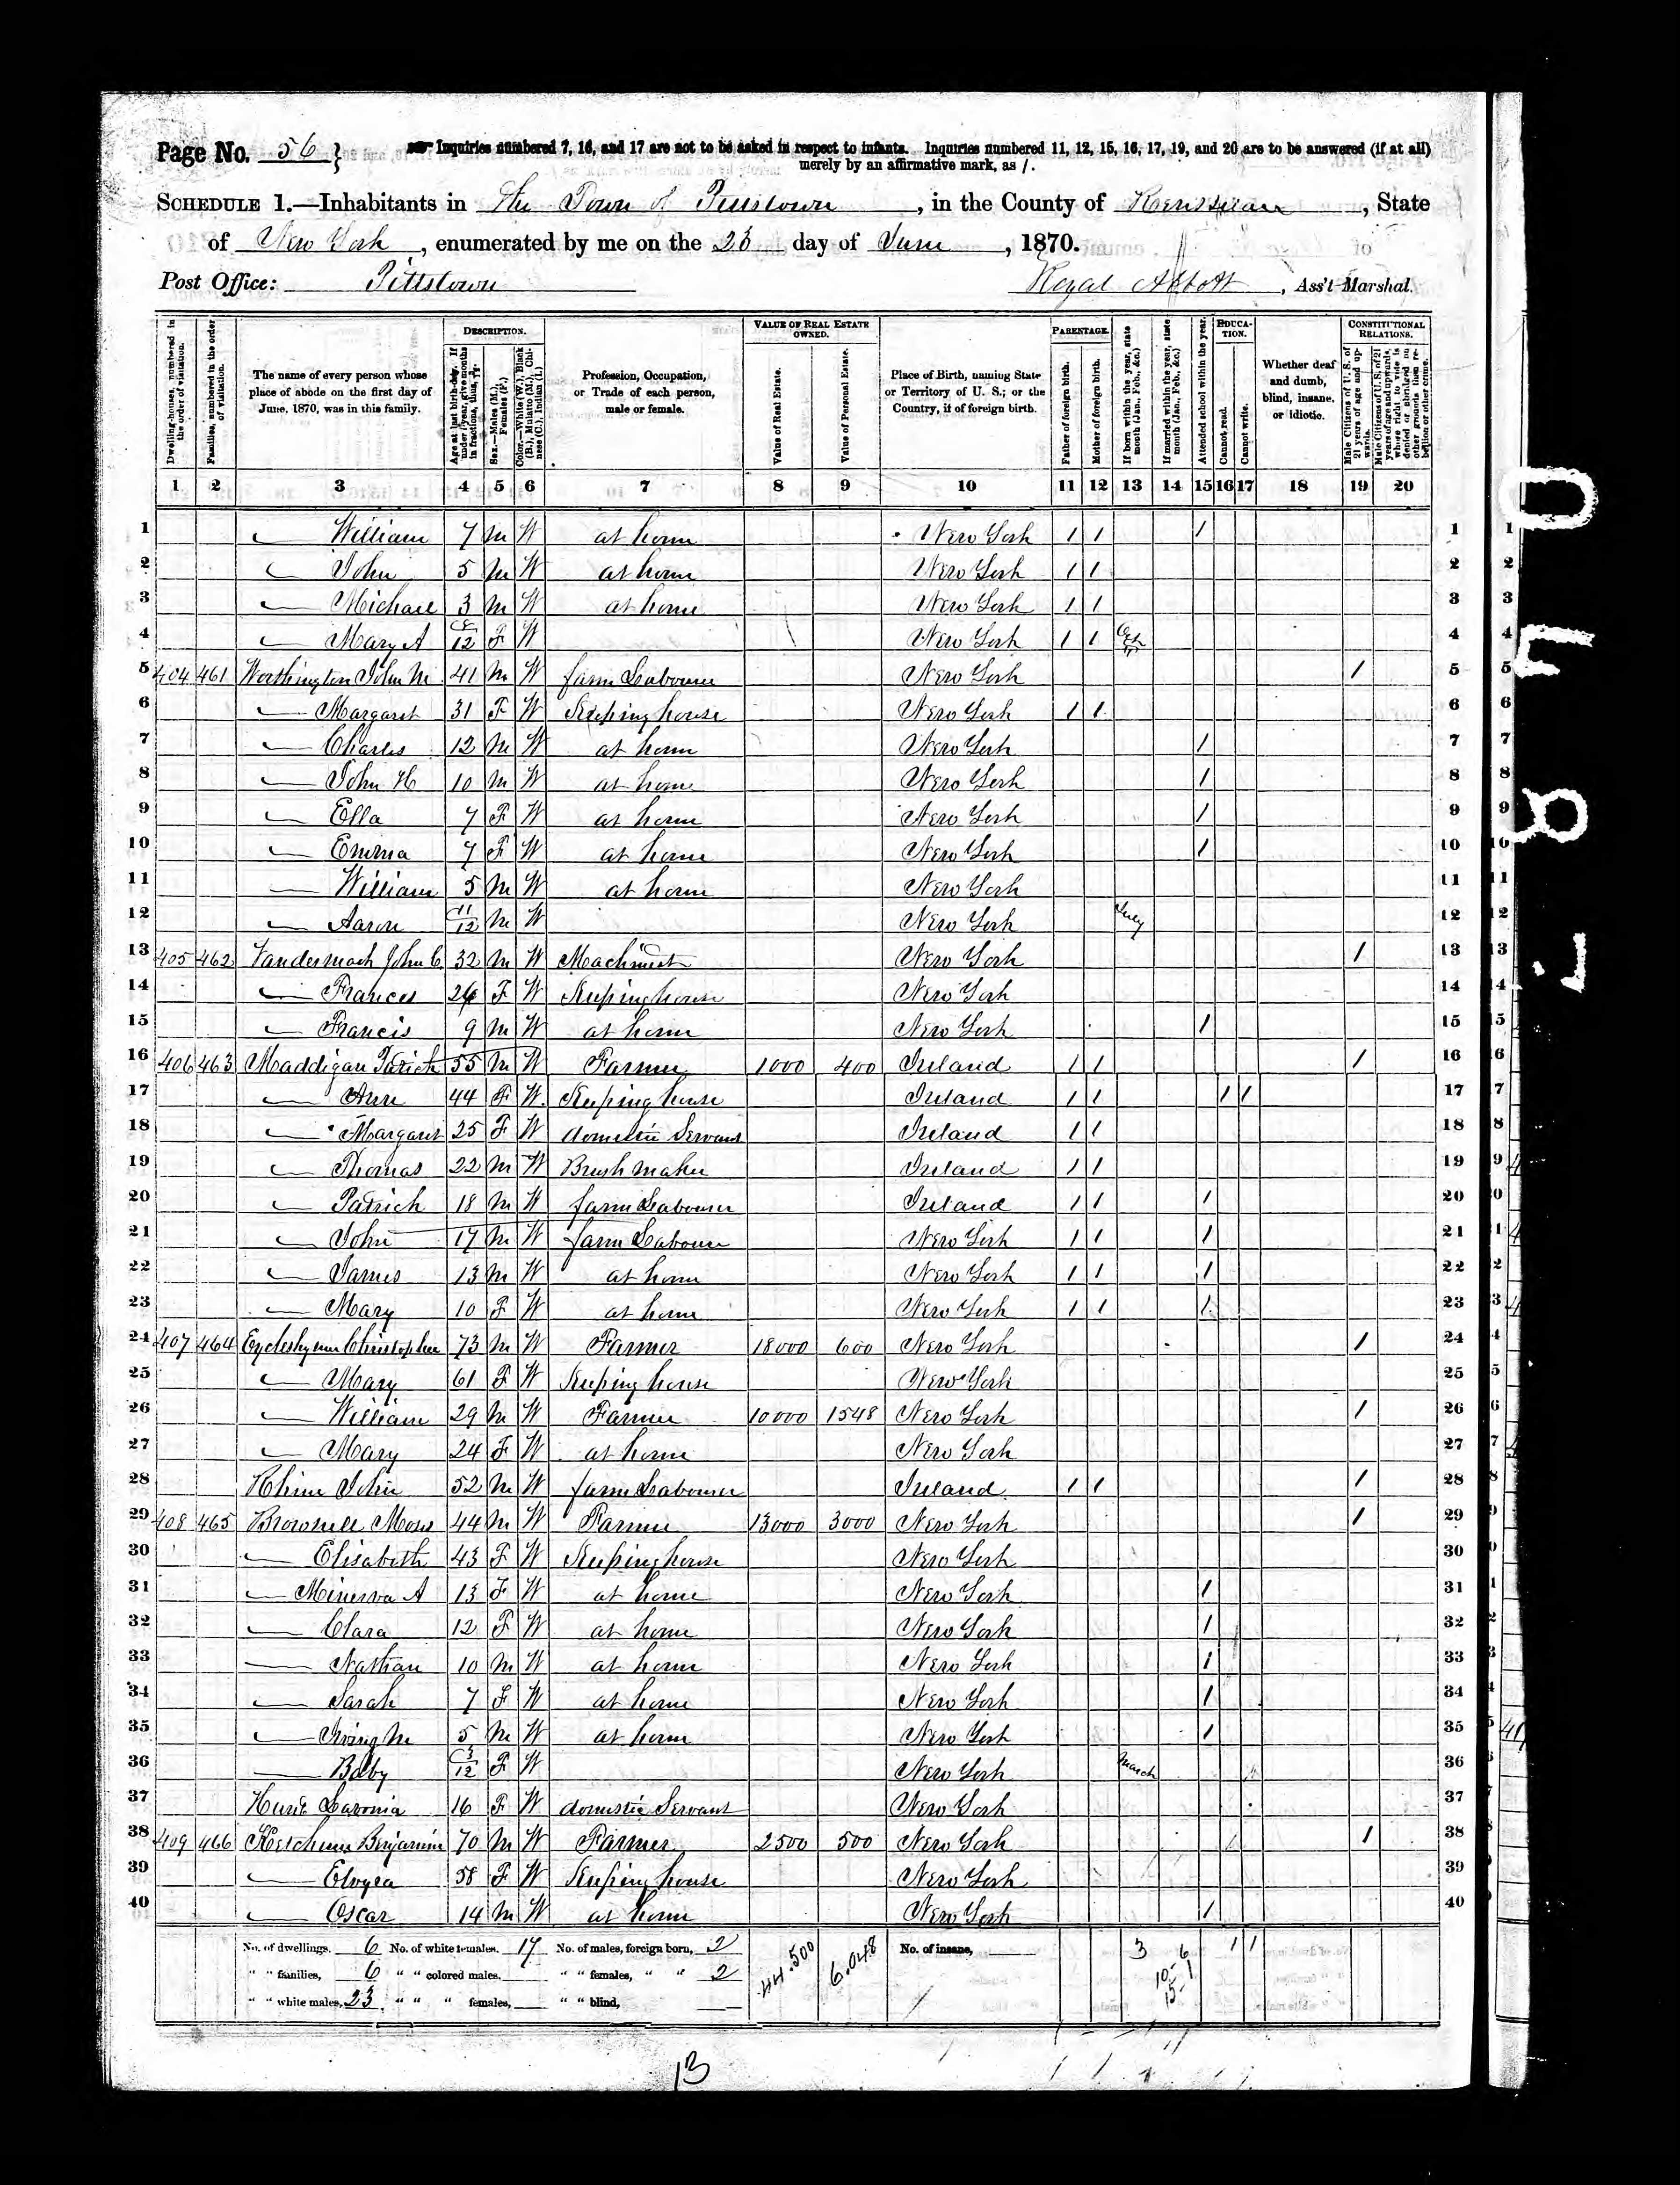 Page No. 56 } Inquiries numbered 7, 16, and 17 are not to be asked in respect to infants. Inquiries numbered 11, 12, 15, 16, 17, 19, and 20 are to be answered (if at all)
merely by an affirmative mark, as /.
SCHEDULE 1.—Inhabitants in the Town of Pittstown, in the County of Rensselaer, State
of New York, enumerated by me on the 23 day of June, 1870.
Post Office: Pittstown Royal Abbott, Ass't Marshal.
Dwelling-houses, numbered in the order of visitation.
Families, numbered in the order of visitation.
The name of every person whose place of abode on the first day of June, 1870, was in this family.
DESCRIPTION.
Age at last birth-day. If under 1 year, give months in fractions, thus, 3/12
Sex.—Males (M.), Females (F.)
Color.—White (W.), Black (B.), Mulatto (M.), Chinese (C.), Indian (I.)
Profession, Occupation, or Trade of each person, male or female.
VALUE OF REAL ESTATE OWNED.
Value of Real Estate.
Value of Personal Estate.
Place of Birth, naming State or Territory of U. S.; or the Country, if of foreign birth.
PARENTAGE.
Father of foreign birth.
Mother of foreign birth.
If born within the year, state month (Jan. Feb., &c.)
If married within the year, state month (Jan., Feb., &c.)
Attended school within the year.
EDUCATION.
Cannot read.
Cannot write.
Whether deaf and dumb, blind, insane, or idiotic.
CONSTITUTIONAL RELATIONS.
Male Citizens of U. S. of 21 years of age and upwards.
Male Citizens of U. S. of 21 years of age and upwards, whose right to vote is denied or abridged on other grounds than rebellion or other crime.
1 2 3 4 5 6 7 8 9 10 11 12 13 14 15 16 17 18 19 20
1 — William 7 M W at home New York / / / 1
2 — John 5 M W at home New York / / 2
3 — Michael 3 M W at home New York / / 3
4 — Mary A 8/12 F W New York / / Oct 4
5 404 461 Worthington John M 41 M W farm Labourer New York / 5
6 — Margaret 31 F W Keeping house New York / / 6
7 — Charles 12 M W at home New York / 7
8 — John H 10 M W at home New York / 8
9 — Ella 7 F W at home New York / 9
10 — Emma 7 F W at home New York / 10
11 — William 5 M W at home New York 11
12 — Aaron 11/12 M W New York July 12
13 405 462 Vandermark John C. 32 M W Machinist New York / 13
14 — Frances 26 F W Keeping house New York 14
15 — Francis 9 M W at home New York / 15
16 406 463 Maddigan Patrick 55 M W Farmer 1000 400 Ireland / / / 16
17 — Ann 44 F W Keeping house Ireland / / / / 17
18 — Margaret 25 F W domestic Servant Ireland / / 18
19 — Thomas 22 M W Brush maker Ireland / / 19
20 — Patrick 18 M W farm Labourer Ireland / / / 20
21 — John 17 M W farm Labourer New York / / / 21
22 — James 13 M W at home New York / / / 22
23 — Mary 10 F W at home New York / / / 23
24 407 464 Eycleshymer Christopher 73 M W Farmer 18000 600 New York / 24
25 — Mary 61 F W Keeping house New York 25
26 — William 29 M W Farmer 10000 1548 New York / 26
27 — Mary 24 F W at home New York 27
28 John 52 M W farm Labourer Ireland / / / 28
29 408 465 Brownell Moses 44 M W Farmer 13000 3000 New York / 29
30 — Elisabeth 43 F W Keeping house New York 30
31 — Minerva A 13 F W at home New York / 31
32 — Clara 12 F W at home New York / 32
33 — Nathan 10 M W at home New York / 33
34 — Sarah 7 F W at home New York / 34
35 — Irving M 5 M W at home New York / 35
36 — Baby 3/12 F W New York March 36
37 Hunt Lavonia 16 F W domestic Servant New York 37
38 409 466 Ketchum Benjamin 70 M W Farmer 2500 500 New York / 38
39 — Elvyra 58 F W Keeping house New York 39
40 — Oscar 14 M W at home New York / 40
No. of dwellings, 6 No. of white females, 17 No. of males, foreign born, 2 44.500 6.048 No. of insane, 3 6 1 1
" " families, 6 " " colored males, " " females, " " 2 10- 1
" " white males, 23 " " " females, " " blind, 15-
13